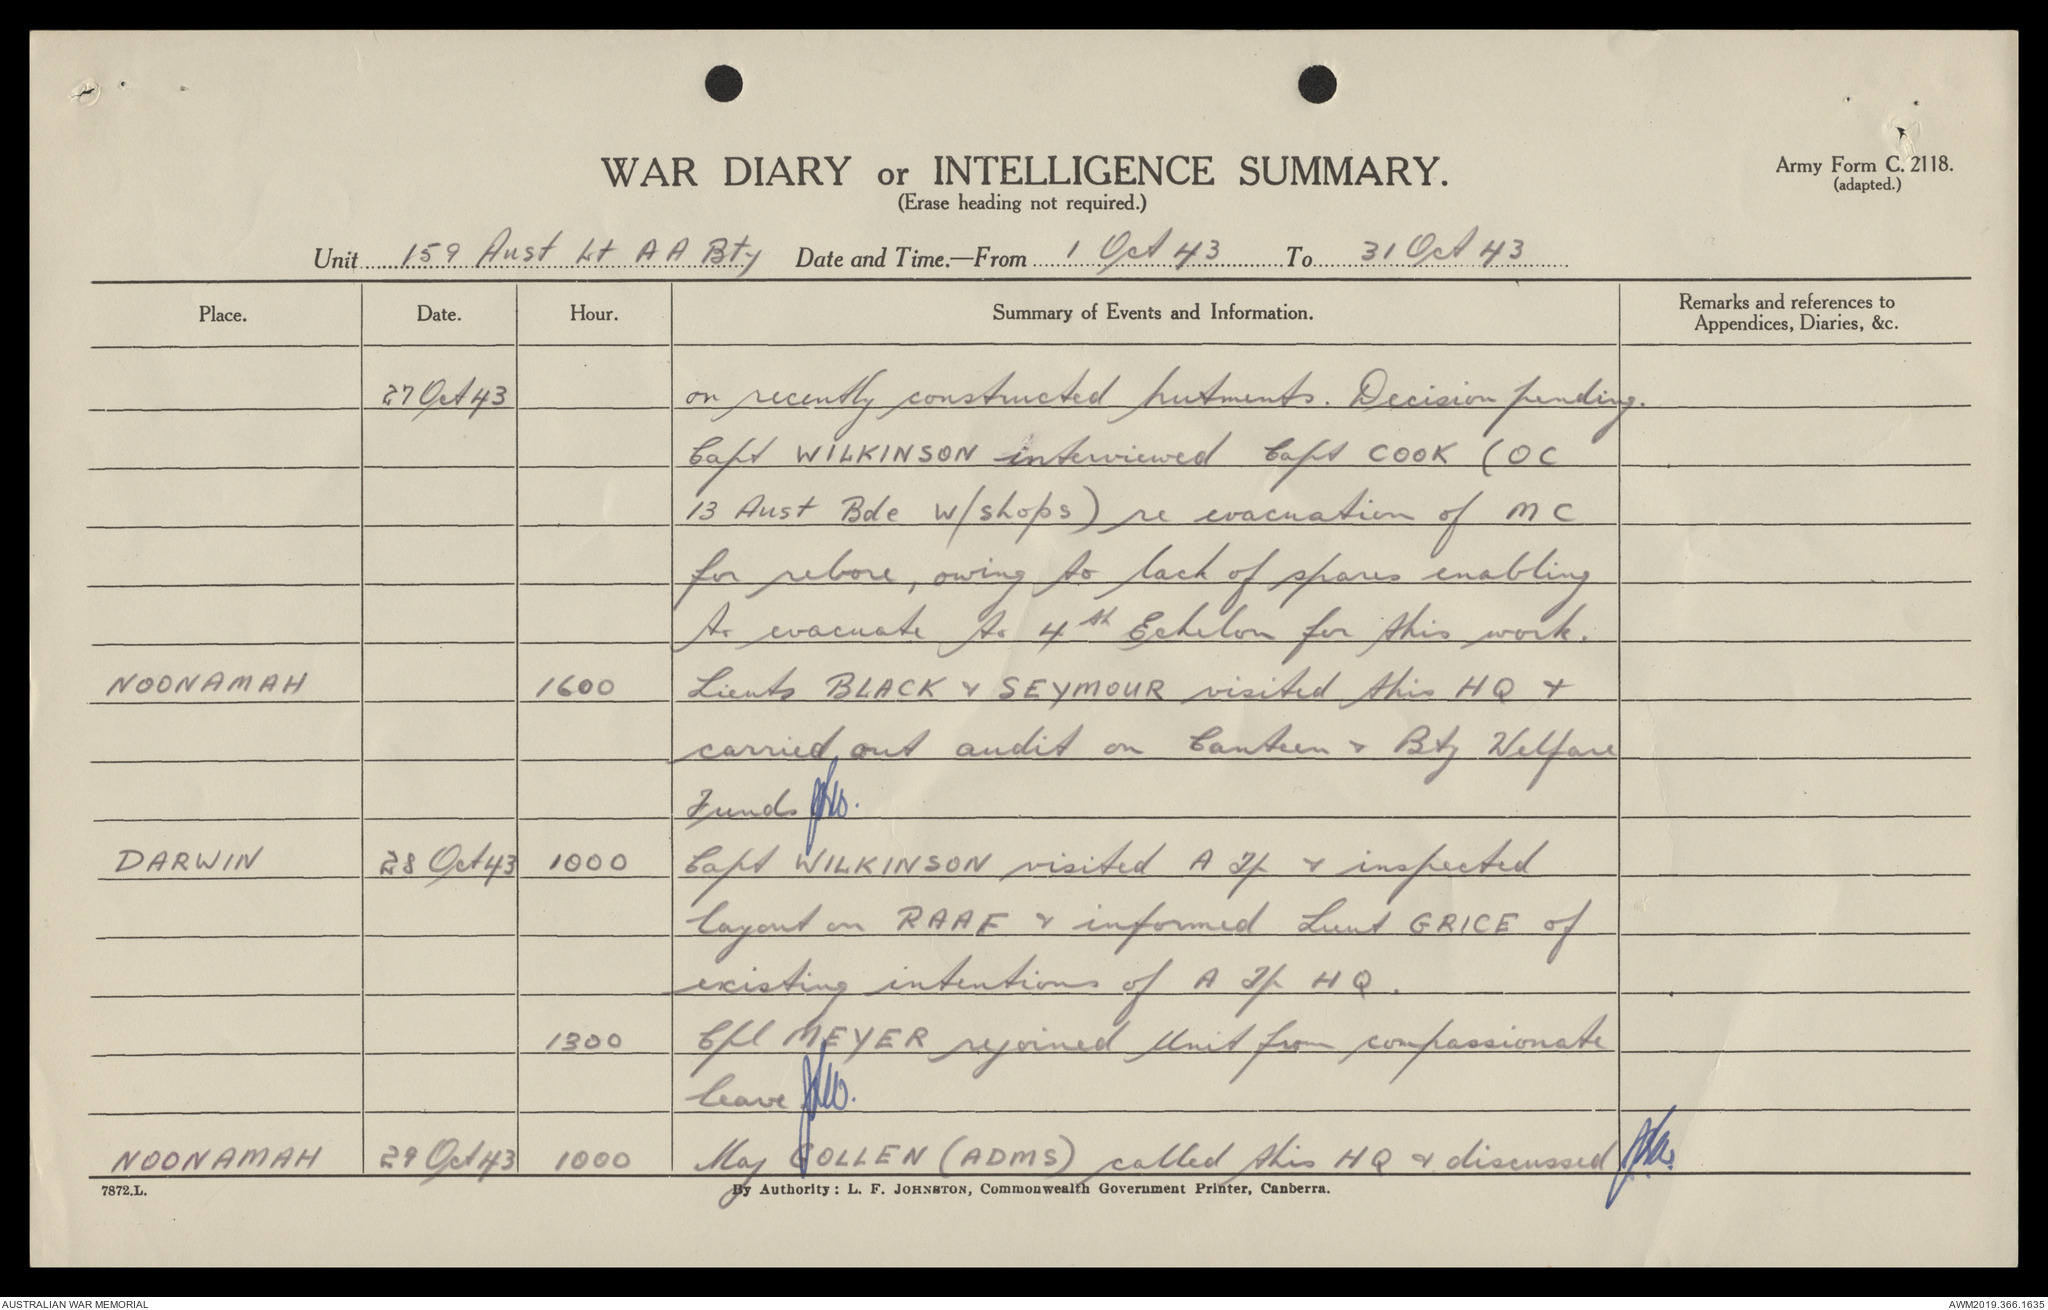 WAR DIARY or INTELLIGENCE SUMMARY.
Army Form C. 2118.
(adapted.)
(Erase heading not required.)
Unit 159 Aust Lt A A Bty Date and Time.—From 1 Oct 43 To 31 Oct 43
Place. Date. Hour. Summary of Events and Information. Remarks and references to Appendices, Diaries, &c.
27 Oct 43 on recently constructed hutments. Decision pending.
Capt WILKINSON interviewed Capt COOK (OC
13 Aust Bde W/shops) re evacuation of MC
for rebore, owing to lack of spares enabling
to evacuate to 4th Echelon for this work.
NOONAMAH 1600 Lieuts BLACK & SEYMOUR visited this HQ &
carried out audit on Canteen & Bty Welfare
Funds
DARWIN 28 Oct 43 1000 Capt WILKINSON visited A Tp & inspected
layout on RAAF & informed Lieut GRICE of
existing intentions of A Tp HQ.
1300 Cpl MEYER rejoined Unit from compassionate
leave
NOONAMAH 29 Oct 43 1000 Maj GOLLEN (ADMS) called this HQ & discussed
7872.L.
By Authority: L. F. JOHNSTON, Commonwealth Government Printer, Canberra.
AUSTRALIAN WAR MEMORIAL
AWM2019.366.1635